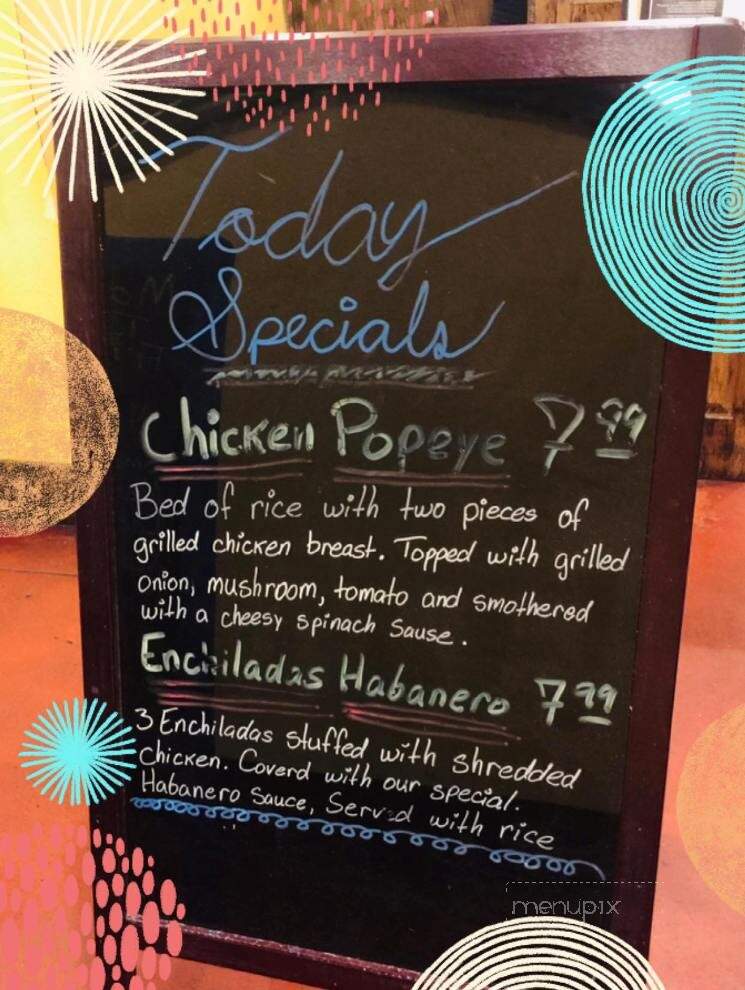 Today
Specials
Chicken Popeye 7 99
Bed of rice with two pieces of
grilled chicken breast. Topped with grilled
onion, mushroom, tomato and smothered
with a cheesy spinach sause.
Enchiladas Habanero 7 99
3 Enchiladas stuffed with shredded
chicken. Coverd with our special.
Habanero Sauce, Served with rice
menupix